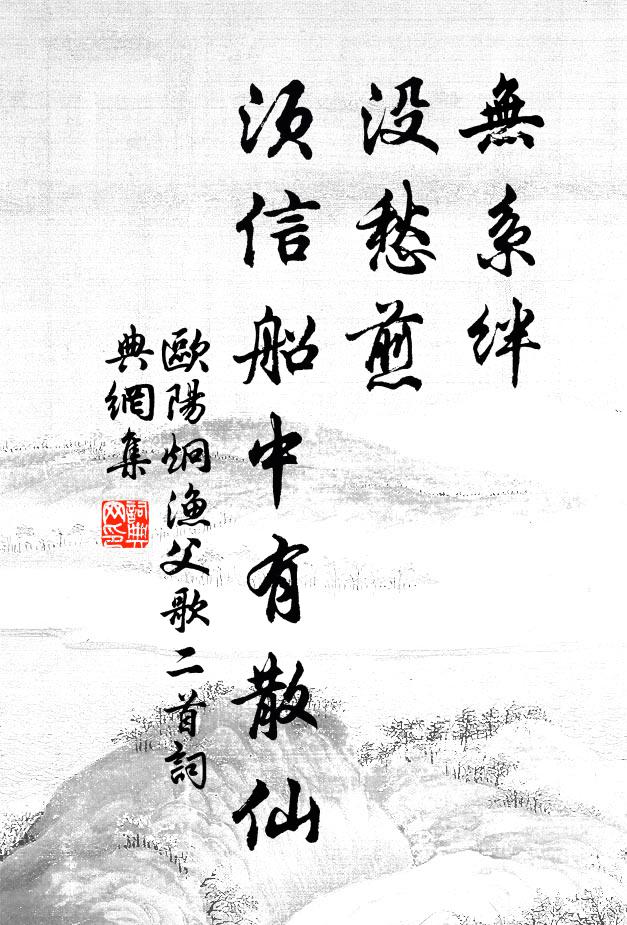 無系絆
没愁煎
須信船中有散仙
歐陽炯漁父歌二首詞
典網集
詞典
网印